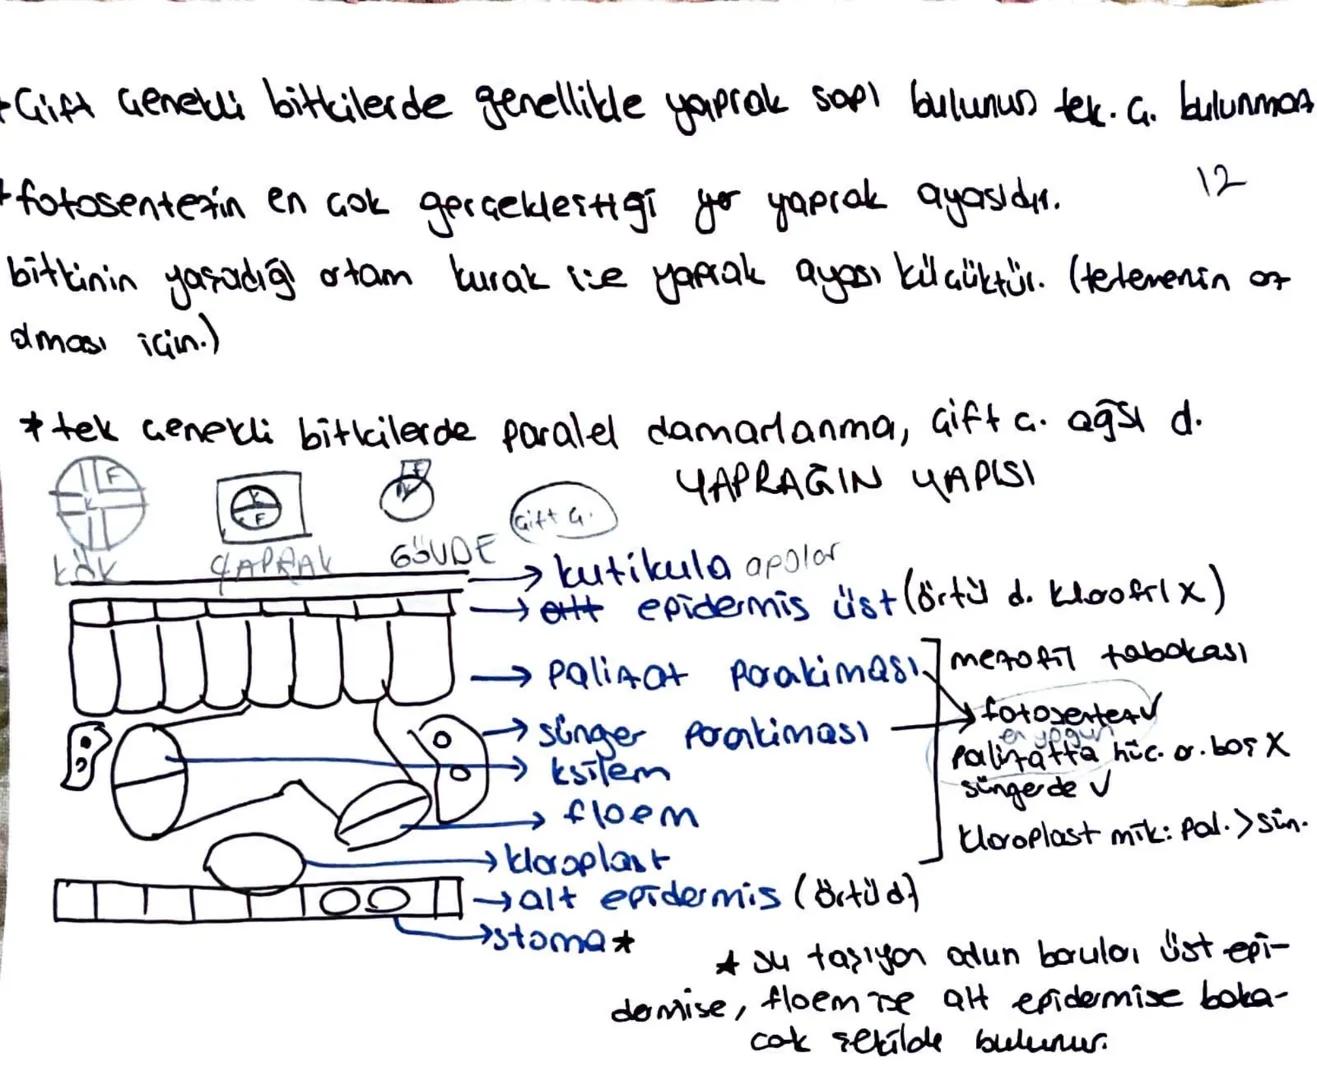 +Çift çenekli bitkilerde genellikle yaprak sapı bulunur tek. ç. bulunmaz
12
+fotosentezin en çok gerçekleştiği yer yaprak ayasıdır.
bitkinin yaşadığı ortam kurak ise yaprak ayası küçüktür. (terlemenin az
olması için.)
* tek çenekli bitkilerde paralel damarlanma, çift ç. ağsı d.
YAPRAĞIN YAPISI
F
K
K
F
F
K
çift ç.
KÖK YAPRAK GÖVDE
→ kutikula apolar
→ alt epidermis üst (örtü d. klorofil X)
→ palizat parakiması
mezofil tabakası
→ sünger parakiması
fotosentez √
en yoğun
→ ksilem
palizatta hüc. a. boş X
süngerde √
→ floem
kloroplast mik: pal. > sün.
→ kloroplast
→ alt epidermis (örtü d)
→ stoma ★
★ su taşıyan odun boruları üst epi-
dermise, floem ise alt epidermise baka-
cak şekilde bulunur.